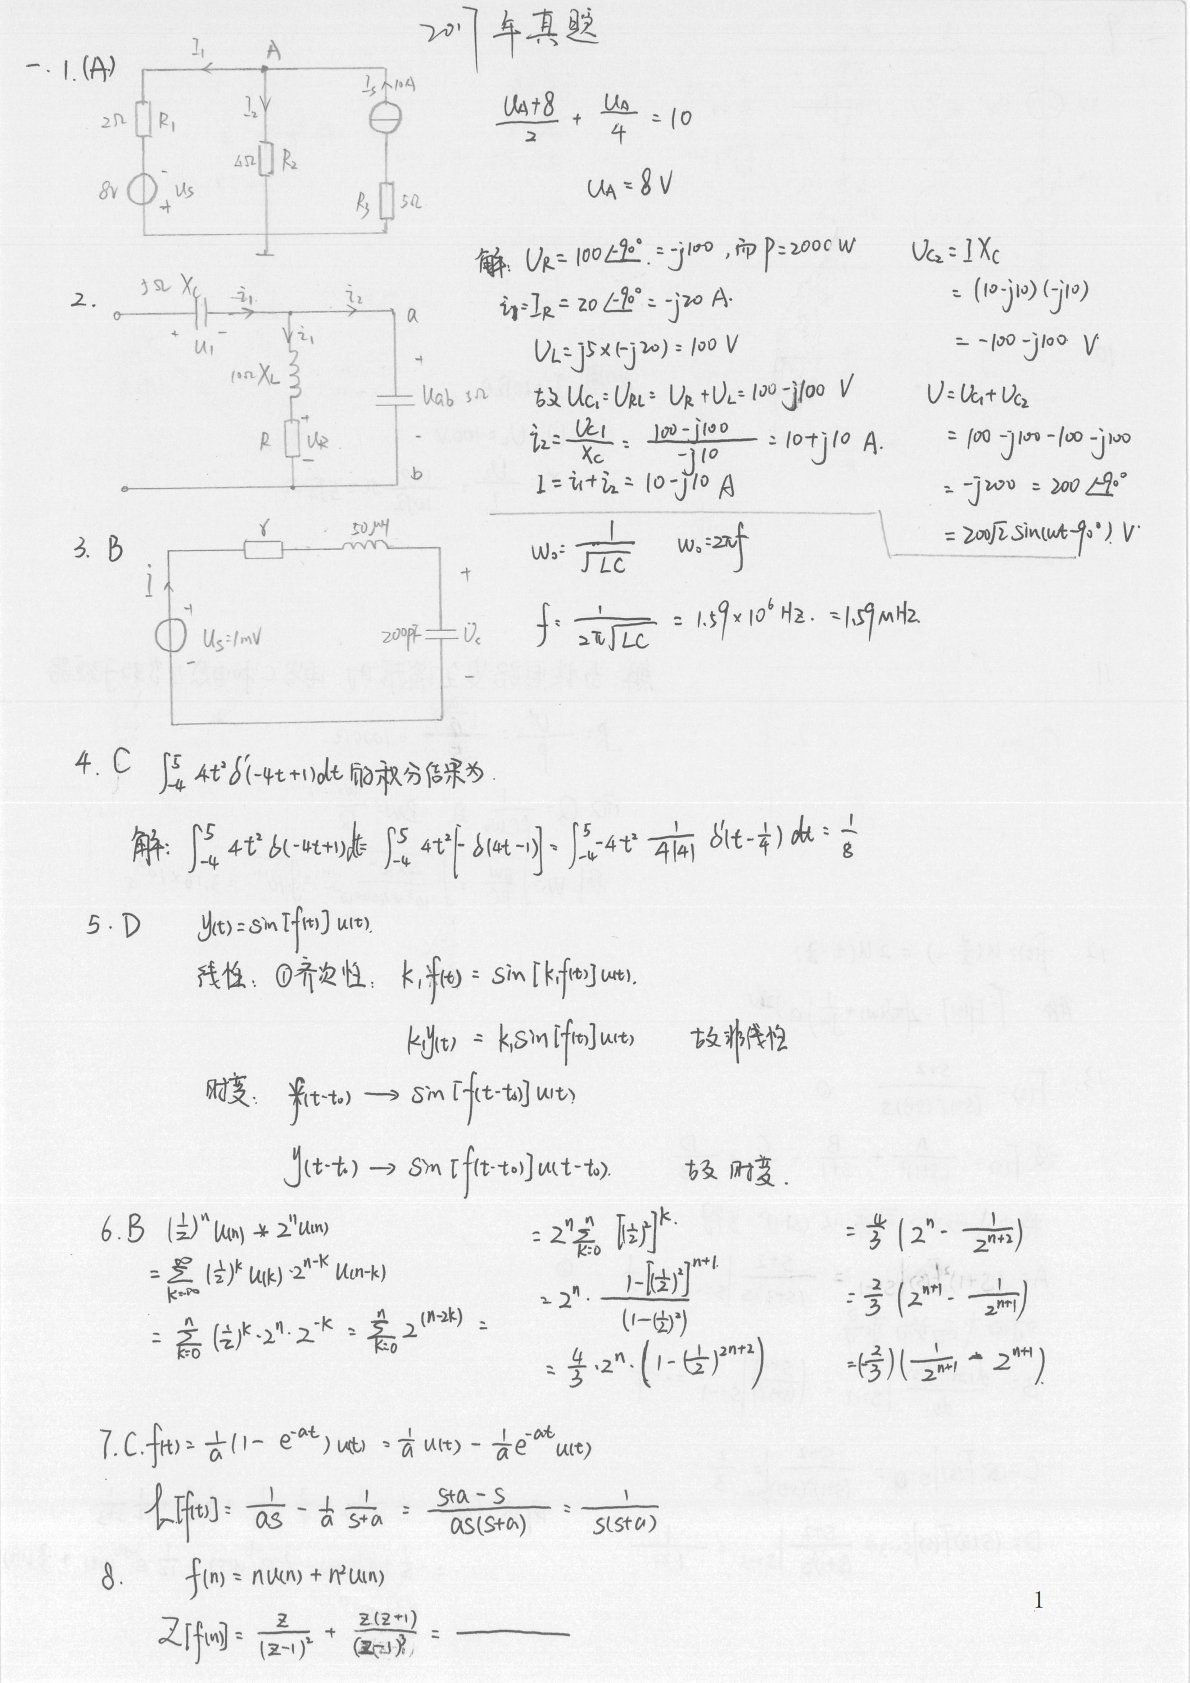 2017年真题
一. 1.(A)
I₁ A
I₂
Is 10A
2Ω R₁
4Ω R₂
8V Us
R₃ 5Ω
- +
(UA+8)/2 + UA/4 = 10
UA = 8V
2.
3Ω Xc i₁ i₂ a
+ U₁ - i₁
10Ω XL
+ Uab 3Ω -
R + UR -
b
解: UR = 100∠-90° = -j100, 而 P=2000W
i₁=IR = 20∠-90° = -j20 A.
UL = j5×(-j20) = 100 V
故 UC₁ = URL = UR + UL = 100-j100 V
i₂ = UC₁/XC = (100-j100)/(-j10) = 10+j10 A.
I = i₁+i₂ = 10-j10 A
UC₂ = I XC
= (10-j10)(-j10)
= -100-j100 V
U = UC₁+UC₂
= 100-j100-100-j100
= -j200 = 200∠-90°
= 200√2 sin(ωt-90°) V
3. B
r 50μH
i
+ Us=1mV -
200pF + U̇c -
ω₀ = 1/√LC ω₀ = 2πf
f = 1/(2π√LC) = 1.59×10⁶ Hz. = 1.59MHz.
4. C ∫₋₄⁵ 4t² δ'(-4t+1)dt 的积分结果为.
解: ∫₋₄⁵ 4t² δ(-4t+1)dt = ∫₋₄⁵ 4t²[-δ(4t-1)] = ∫₋₄⁵ -4t² 1/(4|4|) δ'(t-1/4) dt = 1/8
5. D y(t)=sin[f(t)]u(t).
线性: ①齐次性: k₁f(t) = sin[k₁f(t)]u(t).
k₁y(t) = k₁sin[f(t)]u(t) 故非线性
时变: f(t-t₀) → sin[f(t-t₀)]u(t)
y(t-t₀) → sin[f(t-t₀)]u(t-t₀). 故 时变.
6. B (1/2)ⁿu(n) * 2ⁿu(n)
= Σ(k=-∞,∞) (1/2)ᵏ u(k)·2ⁿ⁻ᵏ u(n-k)
= Σ(k=0,n) (1/2)ᵏ·2ⁿ·2⁻ᵏ = Σ(k=0,n) 2^(n-2k) =
= 2ⁿ Σ(k=0,n) [(1/2)²]ᵏ.
= 2ⁿ · (1-[(1/2)²]ⁿ⁺¹)/(1-(1/2)²)
= 4/3 · 2ⁿ · (1-(1/2)²ⁿ⁺²)
= 4/3 (2ⁿ - 1/2ⁿ⁺²)
= 2/3 (2ⁿ⁺¹ - 1/2ⁿ⁺¹)
= (-2/3)(1/2ⁿ⁺¹ - 2ⁿ⁺¹).
7. C. f(t) = 1/a (1-e⁻ᵃᵗ) u(t) = 1/a u(t) - 1/a e⁻ᵃᵗ u(t)
L[f(t)] = 1/as - 1/a 1/(s+a) = (s+a-s)/(as(s+a)) = 1/(s(s+a))
8. f(n) = nu(n) + n²u(n)
Z[f(n)] = z/(z-1)² + z(z+1)/(z-1)³ =
1